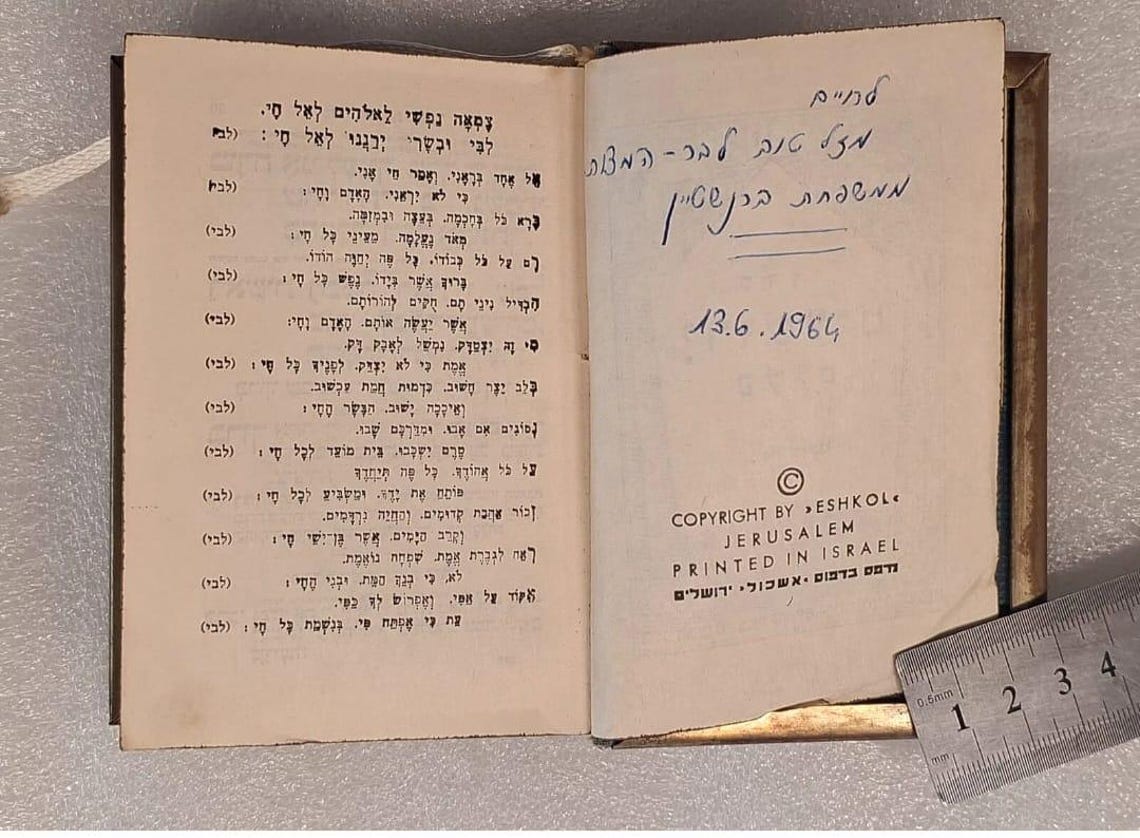 לחיים
מזל טוב לבר-המצוה
ממשפחת ברנשטיין
13.6.1964
©
COPYRIGHT BY »ESHKOL«
JERUSALEM
PRINTED IN ISRAEL
נדפס בדפוס »אשכול« ירושלים
צָמְאָה נַפְשִׁי לֵאלֹהִים לְאֵל חָי.
לִבִּי וּבְשָׂרִי יְרַנְּנוּ לְאֵל חָי: (לבי)
אֵל אֶחָד בְּרָאָנִי. וְאָמַר חַי אָנִי.
כִּי לֹא יִרְאַנִי. הָאָדָם וָחָי: (לבי)
בָּרָא כֹל בְּחָכְמָה. בְּעֵצָה וּבִמְזִמָּה.
מְאֹד נֶעֱלָמָה. מֵעֵינֵי כָל חָי: (לבי)
רָם עַל כֹּל כְּבוֹדוֹ. כָּל פֶּה יְחַוֶּה הוֹדוֹ.
בָּרוּךְ אֲשֶׁר בְּיָדוֹ. נֶפֶשׁ כָּל חָי: (לבי)
הִבְדִּיל נִינֵי תָם. חֻקִּים לְהוֹרוֹתָם.
אֲשֶׁר יַעֲשֶׂה אוֹתָם. הָאָדָם וָחָי: (לבי)
מִי זֶה יִצְטַדָּק. נִמְשַׁל לְאָבָק דָּק.
אֱמֶת כִּי לֹא יִצְדַּק. לְפָנֶיךָ כָּל חָי: (לבי)
בְּלֵב יֵצֶר חָשׁוּב. כִּדְמוּת חֲמַת עַכְשׁוּב.
וְאֵיכָכָה יָשׁוּב. הַבָּשָׂר הֶחָי: (לבי)
נְסוֹגִים אִם אָבוּ. וּמִדַּרְכָּם שָׁבוּ.
טֶרֶם יִשְׁכָּבוּ. בֵּית מוֹעֵד לְכָל חָי: (לבי)
עַל כֹּל אֲהוֹדֶךָ. כָּל פֶּה תְּיַחֲדֶךָ
פּוֹתֵחַ אֶת יָדֶךָ. וּמַשְׂבִּיעַ לְכָל חָי: (לבי)
זְכוֹר אַהֲבַת קְדוּמִים. וְהַחֲיֵה נִרְדָּמִים.
וְקָרֵב הַיָּמִים. אֲשֶׁר בֶּן־יִשַׁי חָי: (לבי)
רְאֵה לִגְבֶרֶת אֱמֶת. שִׁפְחָה נוֹאֶמֶת.
לֹא, כִּי בְנֵךְ הַמֵּת. וּבְנִי הֶחָי: (לבי)
אֶקּוֹד עַל אַפִּי. וְאֶפְרוֹשׂ לְךָ כַּפִּי.
עֵת כִּי אֶפְתַּח פִּי. בְּנִשְׁמַת כָּל חָי: (לבי)
0.5mm
1 2 3 4
mm